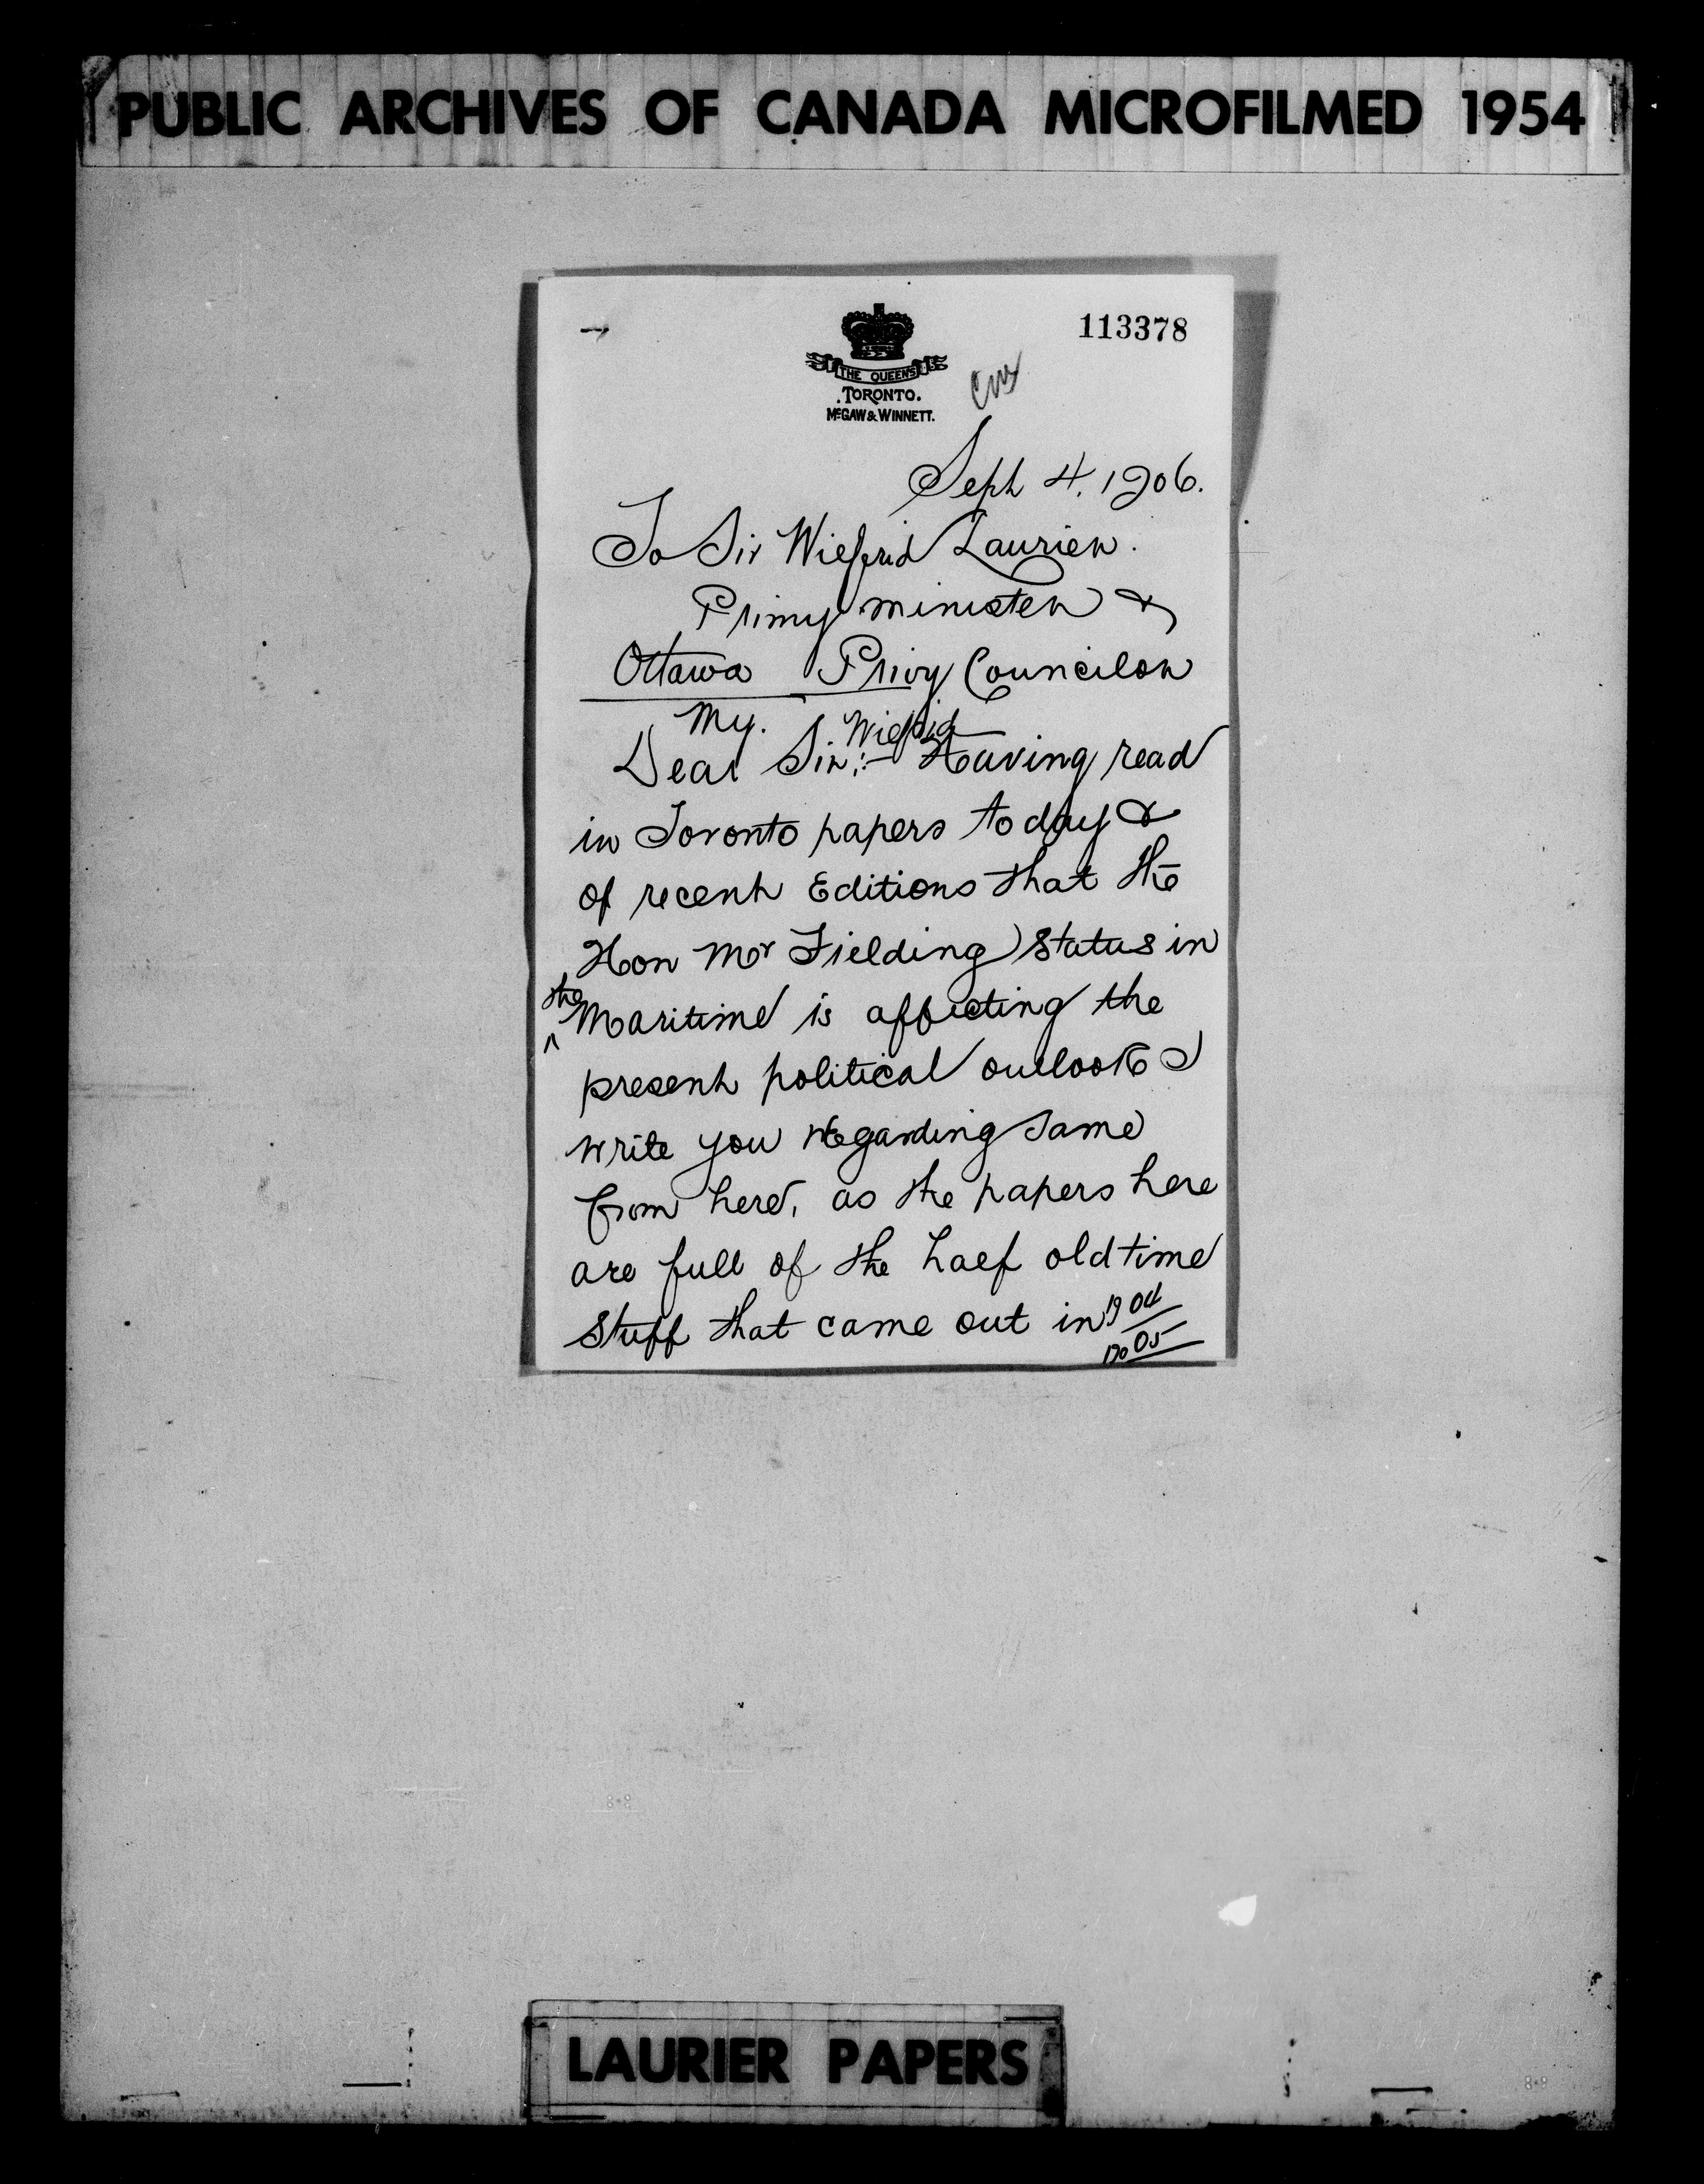 PUBLIC ARCHIVES OF CANADA MICROFILMED 1954
113378
THE QUEEN'S
TORONTO.
McGAW & WINNETT.
Sept 4. 1906.
To Sir Wilfrid Laurier.
Primy minister &
Ottawa Privy Councilor
My. Wilfrid
Dear Sir:- Having read
in Toronto papers to day &
of recent Editions that the
Hon Mr Fielding status in
the
Maritime is affecting the
present political outlook I
write you regarding same
from here, as the papers here
are full of the half old time
stuff that came out in 1904
1905
LAURIER PAPERS